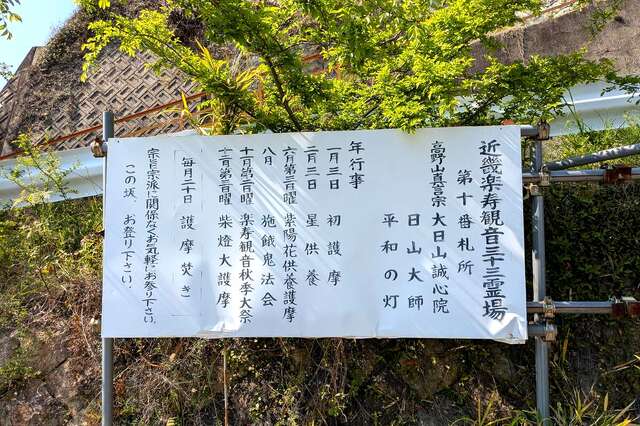 近畿楽寿観音三十三霊場
第十番札所
高野山真言宗 大日山誠心院
日山大師
平和の灯
年行事
一月三日 初護摩
二月三日 星供養
六月第三日曜 紫陽花供養護摩
八月 施餓鬼法会
十月第二日曜 楽寿観音秋季大祭
十二月第三日曜 柴燈大護摩
毎月二十日 護摩焚き
宗旨宗派に関係なくお気軽にお参り下さい。
この坂、お登り下さい。